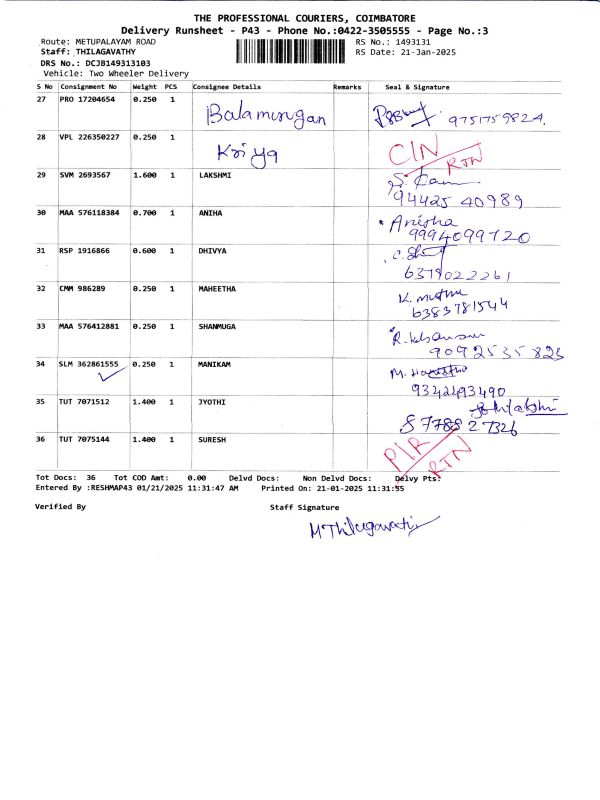 THE PROFESSIONAL COURIERS, COIMBATORE
Delivery Runsheet - P43 - Phone No.:0422-3505555 - Page No.:3
Route: METUPALAYAM ROAD RS No.: 1493131
Staff: THILAGAVATHY RS Date: 21-Jan-2025
DRS No.: DCJB149313103
Vehicle: Two Wheeler Delivery
S No Consignment No Weight PCS Consignee Details Remarks Seal & Signature
27 PRO 17204654 0.250 1 Balamurugan 9751759824.
28 VPL 226350227 0.250 1 Kriya CIN RTN
29 SVM 2693567 1.600 1 LAKSHMI
94425 40989
30 MAA 576118384 0.700 1 ANIHA Anisha
9994099720
31 RSP 1916866 0.600 1 DHIVYA
6379022261
32 CMM 986289 0.250 1 MAHEETHA K. muthu
6383781544
33 MAA 576412881 0.250 1 SHANMUGA
9092535823
34 SLM 362861555 0.250 1 MANIKAM
9342493490
35 TUT 7071512 1.400 1 JYOTHI
8778827326
36 TUT 7075144 1.400 1 SURESH RTN
Tot Docs: 36 Tot COD Amt: 0.00 Delvd Docs: Non Delvd Docs: Delvy Pts:
Entered By :RESHMAP43 01/21/2025 11:31:47 AM Printed On: 21-01-2025 11:31:55
Verified By Staff Signature
M Thilagavathi